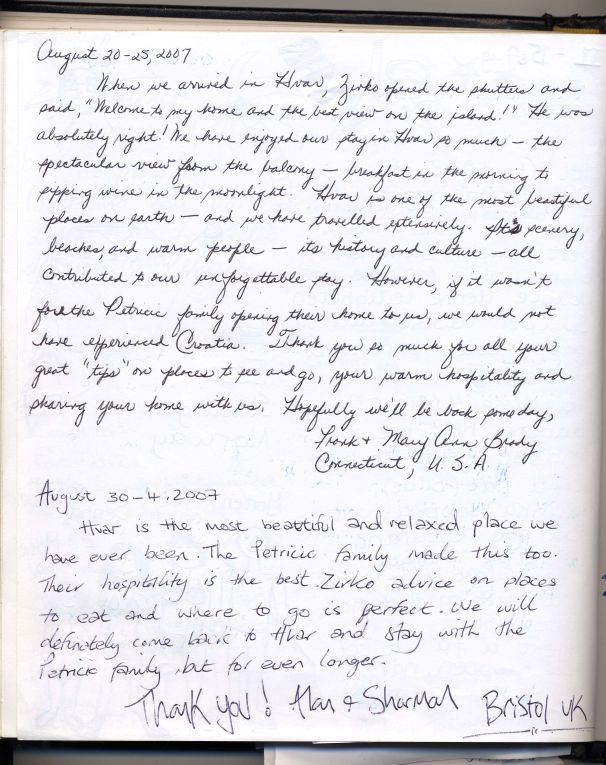 August 20-25, 2007
When we arrived in Hvar, Zirko opened the shutters and
said, "Welcome to my home and the best view on the island!" He was
absolutely right! We have enjoyed our stay in Hvar so much — the
spectacular view from the balcony — breakfast in the morning to
sipping wine in the moonlight. Hvar is one of the most beautiful
places on earth — and we have travelled extensively. Its scenery,
beaches, and warm people — its history and culture — all
contributed to our unforgettable stay. However, if it wasn't
for the Petricic family opening their home to us, we would not
have experienced Croatia. Thank you so much for all your
great "tips" on places to see and go, your warm hospitality and
sharing your home with us. Hopefully we'll be back some day,
Frank + Mary Ann Brady
Connecticut, U.S.A.
August 30-4.2007
Hvar is the most beautiful and relaxed place we
have ever been. The Petricic family made this too.
Their hospitality is the best. Zirko advice on places
to eat and where to go is perfect. We will
definately come back to Hvar and stay with the
Petricic family, but for even longer.
Thank you! Alan & Sharmah Bristol UK